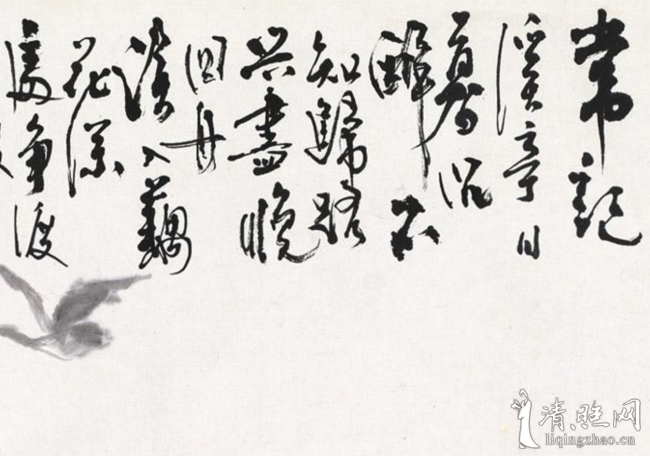 常記
溪亭日
暮沉
醉不
知歸路
興盡晚
回舟
誤入藕
花深
處爭渡
清旺网
liqingzhao.cn